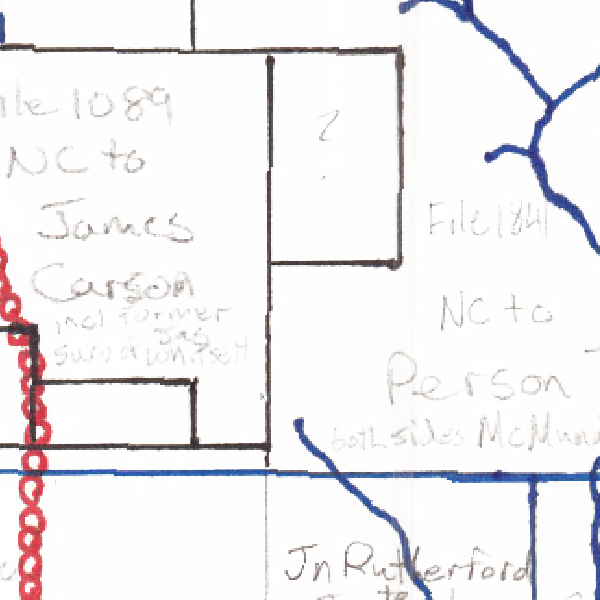 ile 1089
NC to
James
Carson
incl former
Jas
surv of
?
File 1841
NC to
Person
both sides McMun
Jn Rutherford
to